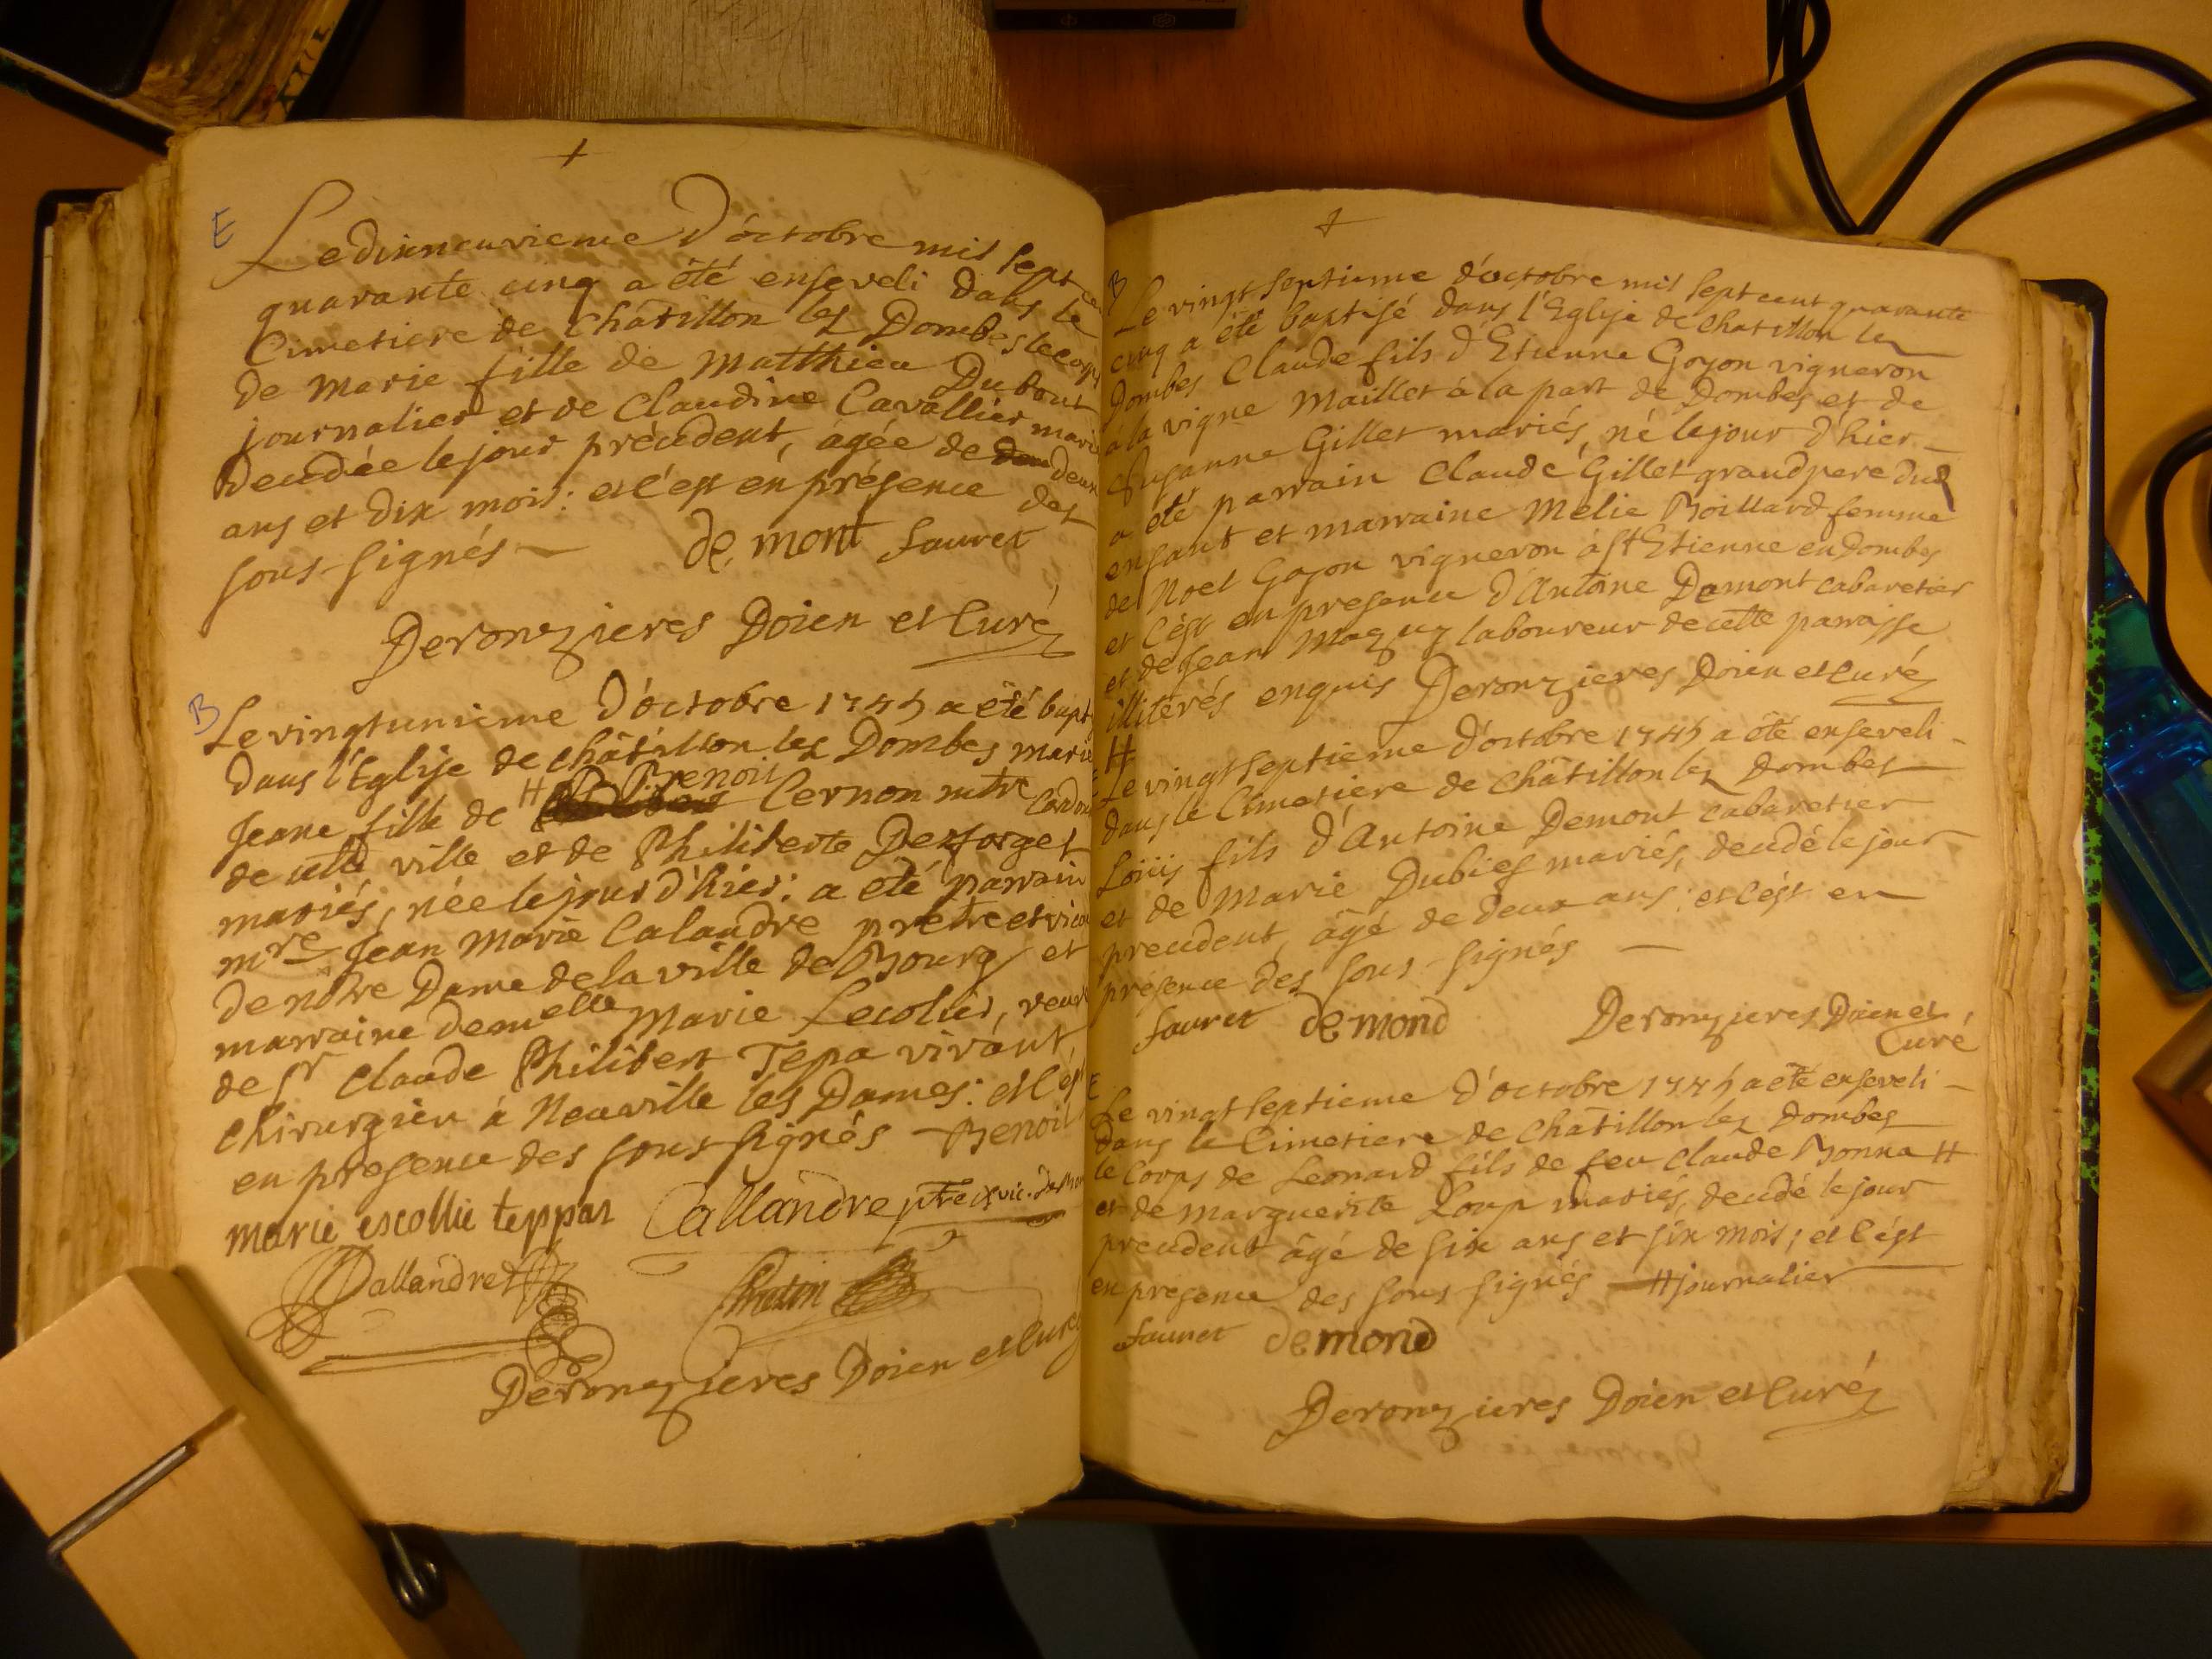 E
Le dixneuvieme d'octobre mil sept
quarante cinq a été enseveli dans le
Cimetiere de Châtillon les Dombes le corps
de marie fille de Matthieu Dubout
journalier et de Claudine Cavallier mariés
decédée le jour précédent, âgée de deux
ans et dix mois: et c'est en présence des
sous-signés de mont Sauret
Deronzieres Doien et Curé
B
Le vingtunieme d'octobre 1745 a été bapt
dans l'Eglise de châtillon les Dombes marie
Jeane fille de H Benoit Cernon mtre Cordon
de cette ville et de Philiberte Desforges
mariés, née le jour d'hier: a été parrain
mre Jean Marie Calandre prêtre et vica
de nôtre Dame de la ville de Bourg et
marraine demelle Marie Lecolier, veuve
de Sr Claude Philibert Tepa vivant
chirurgien à Neuville les Dames: et c'est
en presence des sous signés Benoit
marie escollie teppar Callandre ptre & vic.
Callandre
Deronzieres Doien et Curé
B
Le vingt septieme d'octobre mil sept cent quarante
cinq a été baptisé dans l'Eglise de chatillon les
Dombes Claude fils d'Etienne Goyon vigneron
à la vigne Maillet à la part de Dombes et de
Susanne Gillet mariés, né le jour d'hier
a été parrain Claude Gillet grandpere dud
enfant et marraine Melie Boillard femme
de Noel Goyon vigneron à St Etienne en Dombes
et c'est en presence d'Antoine Demont cabaretier
et de Jean Maguy laboureur de cette parroisse
illiterés enquis Deronzieres Doien et Curé
H
Le vingt septieme d'octobre 1745 a été enseveli
dans le Cimetiere de Châtillon les Dombes
Loüis fils d'Antoine Demont cabaretier
et de Marie Dubief mariés, decédé le jour
precedent, âgé de deux ans: et c'est en
présence des sous-signés
Sauret demond Deronzieres Doien et
Curé
E
Le vingt septieme d'octobre 1745 a été enseveli
dans le Cimetiere de châtillon les Dombes
le Corps de Leonard fils de feu Claude Bonna H
et de Marguerite Loup mariés, decédé le jour
precedent âgé de six ans et six mois; et c'est
en presence des sous signés H journalier
Sauret demond
Deronzieres Doien et Curé